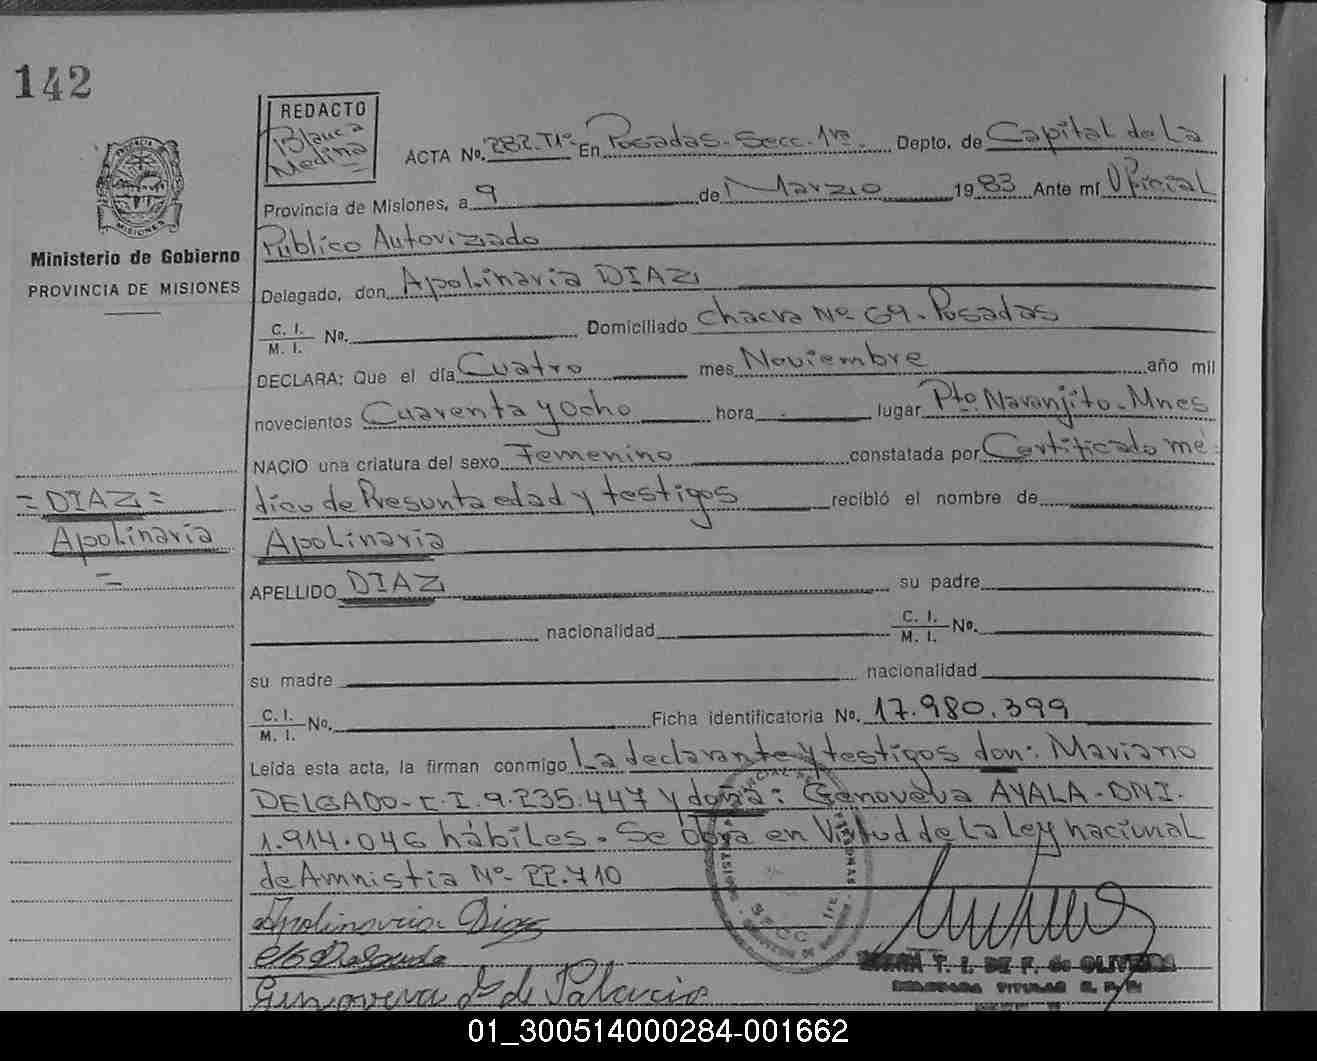 142
REDACTO
Blanca
Medina
ACTA No. 282.Tº1º En Posadas-Secc. 1ra. Depto. de Capital de La
Provincia de Misiones, a 9 de Marzo 1983 Ante mí Oficial
Público Autorizado
MISIONES
Ministerio de Gobierno
PROVINCIA DE MISIONES
Delegado, don Apolinaria DIAZ
C. I.
M. I. No. Domiciliado Chacra Nº 69-Posadas
DECLARA: Que el día Cuatro mes Noviembre año mil
novecientos Cuarenta y Ocho hora - lugar Pto. Naranjito-Mnes
NACIO una criatura del sexo Femenino constatada por Certificado mé-
dico de Presunta edad y testigos recibió el nombre de
Apolinaria
= DIAZ =
Apolinaria
=
APELLIDO DIAZ su padre
nacionalidad C. I.
M. I. No.
su madre nacionalidad
C. I.
M. I. No. Ficha identificatoria No. 17.980.399
Leída esta acta, la firman conmigo La declarante y testigos don: Mariano
DELGADO-C.I. 9.235.447 y doña: Genoveva AYALA-DNI.
1.914.046 hábiles. Se obra en Virtud de La Ley nacional
de Amnistia Nº 22.710
Apolinaria Diaz
Delgado
Genoveva de Palacio
SECC. 1ra.
T. I. DE F. de OLIVEIRA
DELEGADA TITULAR
01_300514000284-001662